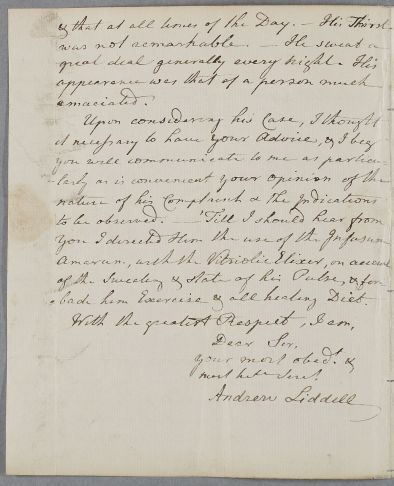 & that at all times of the Day. — His Thirst
was not remarkable. — He sweat a
great deal generally every night. His
appearance was that of a person much
emaciated.
Upon considering his Case, I thought
it necessary to have your Advice, & I beg
you will communicate to me as particu-
-larly as is convenient your opinion of the
nature of his Complaint & the Indications
to be observed. — 'Till I should hear from
you I directed Him the use of the Infusum
Amarum, with the Vitriolic Elixer, on account
of the Sweating & state of his Pulse, & for-
-bade him Exercise & all heating Diet.
With the greatest Respect, I am,
Dear Sir,
your most obed.t &
most hble Servt.
Andrew Liddell